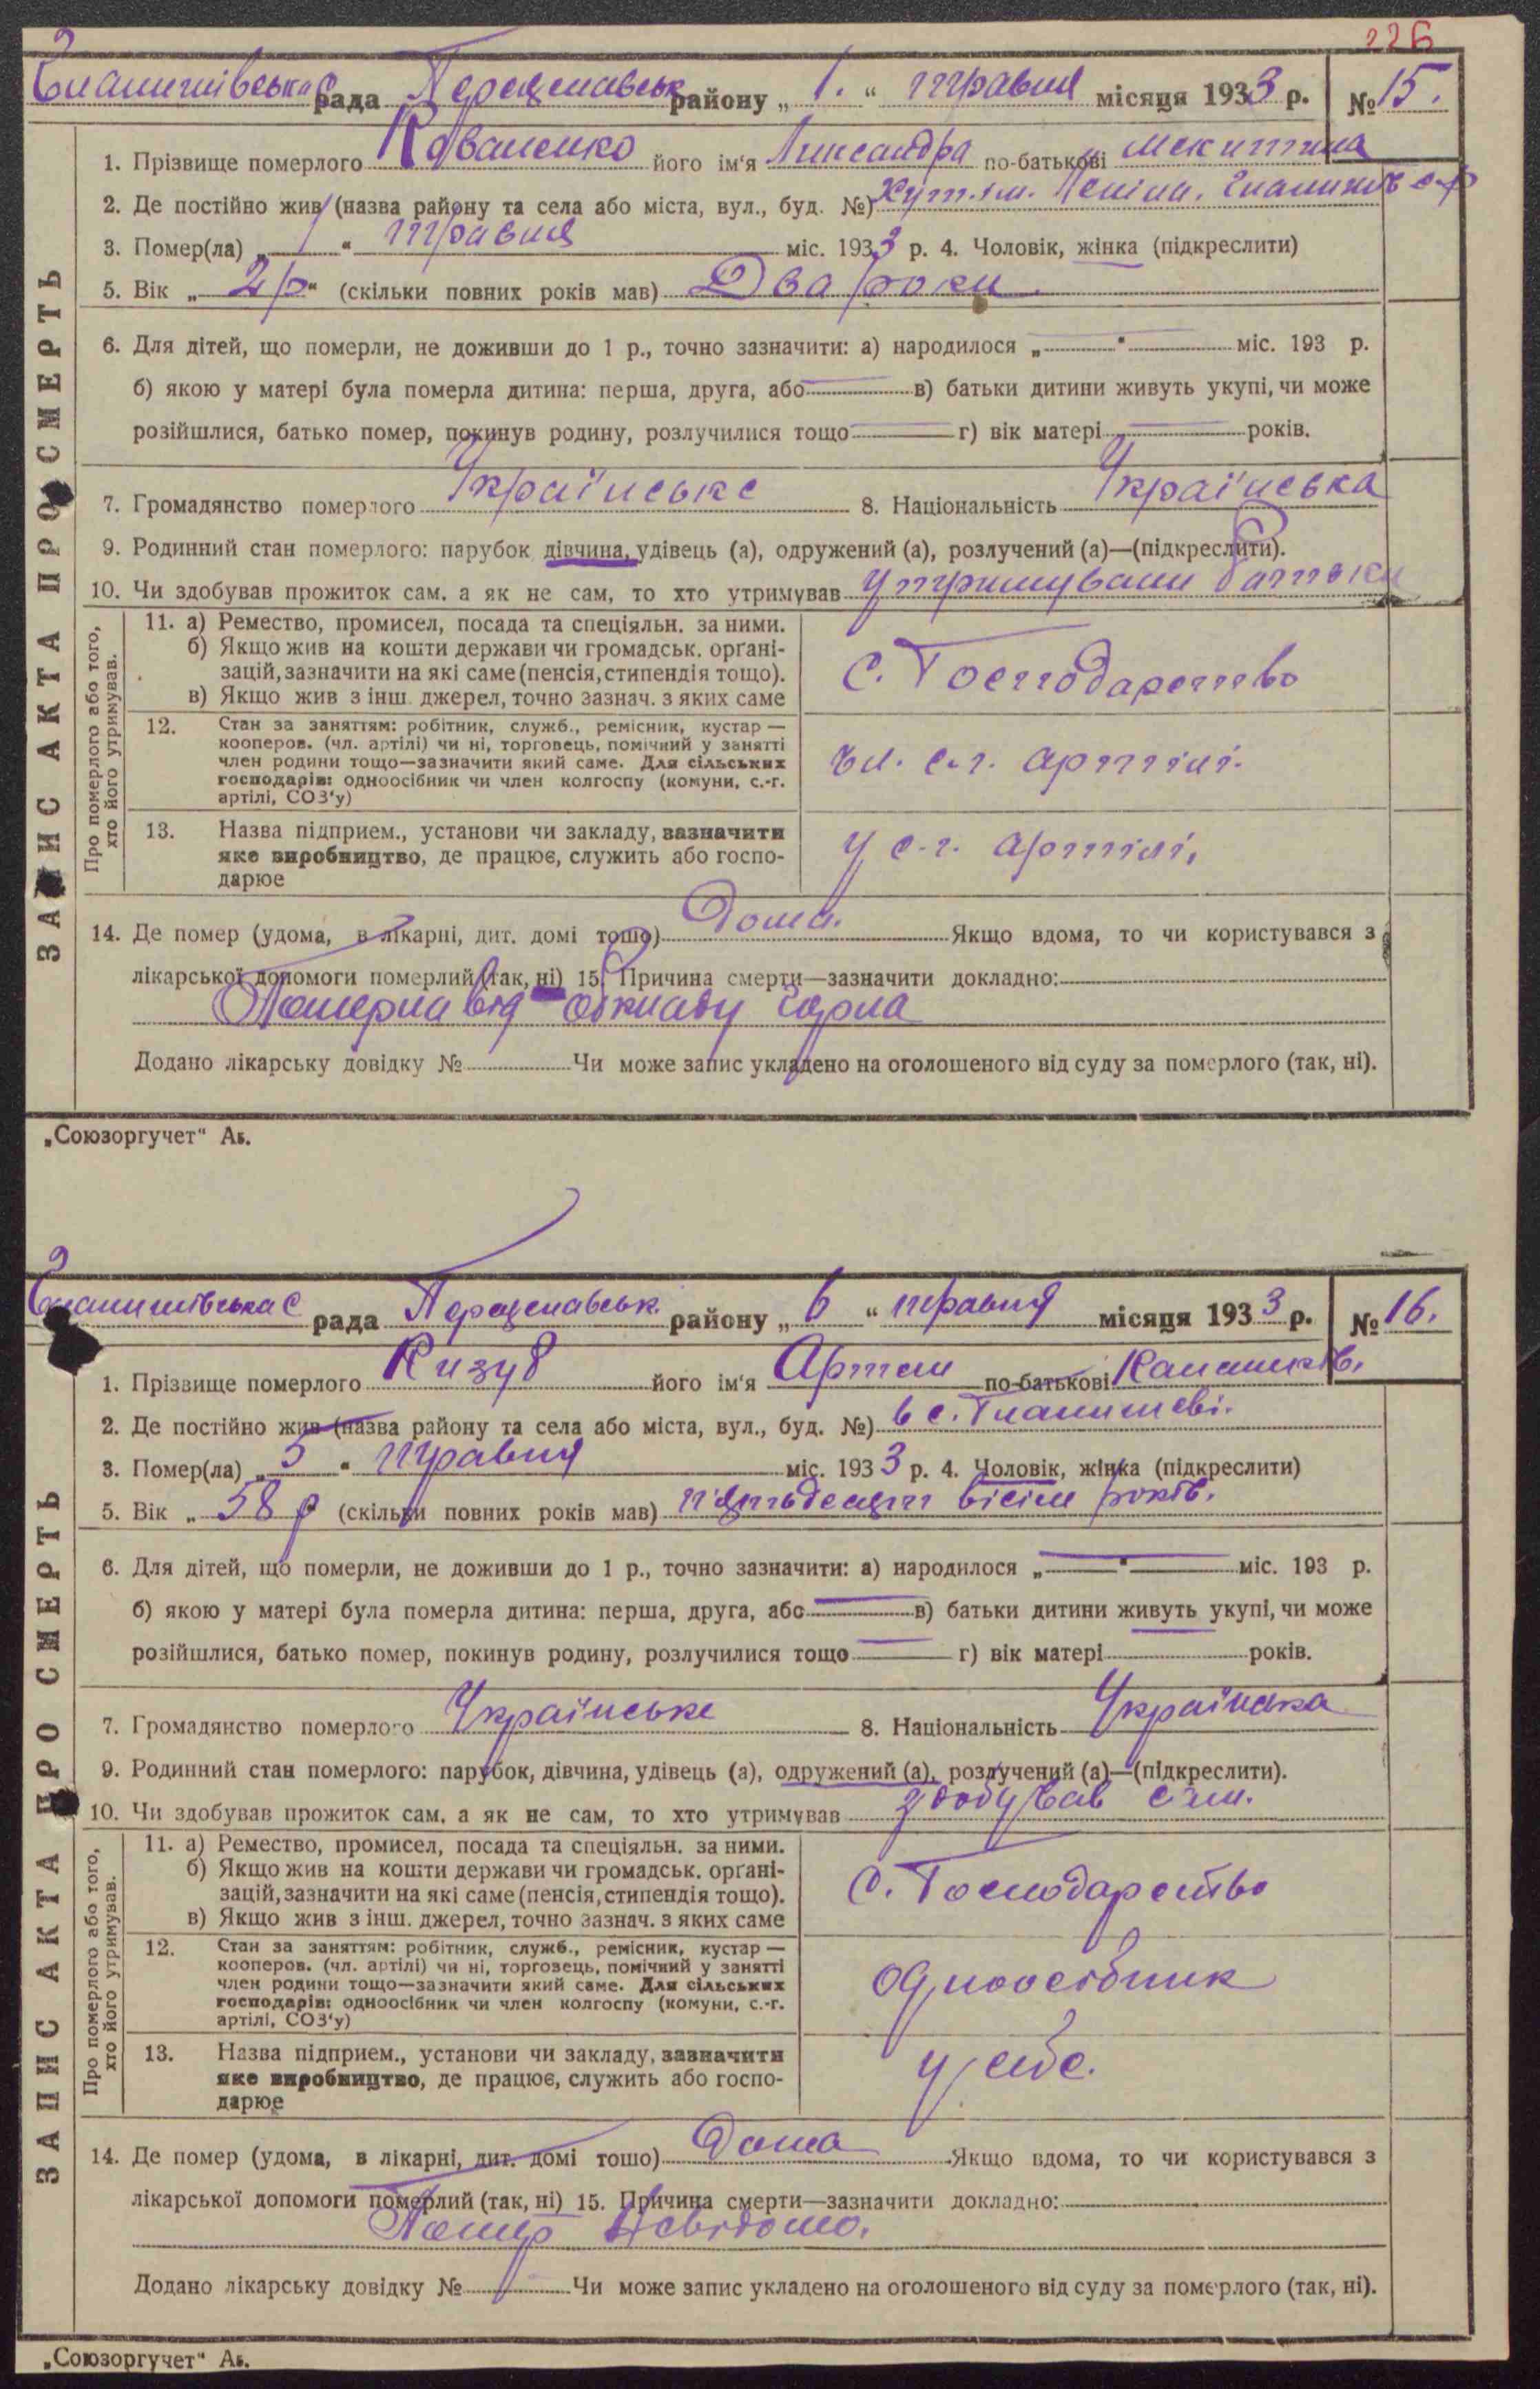 226
Гланишівська с рада Переяславськ району „ 1. “ травня місяця 1933 р. № 15.
1. Прізвище померлого Коваленко його ім'я Лександра по-батькові Мекитина
2. Де постійно жив (назва району та села або міста, вул., буд. №) Хут. ім. Леніна. Гланишів с-р
3. Помер(ла) „ 1 “ травня міс. 1933 р. 4. Чоловік, жінка (підкреслити)
5. Вік „ 2 р “ (скільки повних років мав) Два роки.
6. Для дітей, що померли, не доживши до 1 р., точно зазначити: а) народилося „ — “ — міс. 193 р.
б) якою у матері була померла дитина: перша, друга, або — в) батьки дитини живуть укупі, чи може
розійшлися, батько помер, покинув родину, розлучилися тощо — г) вік матері — років.
7. Громадянство померлого Українське 8. Національність Українська
9. Родинний стан померлого: парубок дівчина, удівець (а), одружений (а), розлучений (а)—(підкреслити).
10. Чи здобував прожиток сам, а як не сам, то хто утримував утримували батьки
11. а) Ремество, промисел, посада та спеціяльн. за ними.
б) Якщо жив на кошти держави чи громадськ. орґані-
зацій, зазначити на які саме (пенсія, стипендія тощо).
в) Якщо жив з інш. джерел, точно зазнач. з яких саме
С. Господарство
12. Стан за заняттям: робітник, служб., ремісник, кустар —
кооперов. (чл. артілі) чи ні, торговець, помічний у занятті
член родини тощо—зазначити який саме. Для сільських
господарів: одноосібник чи член колгоспу (комуни, с.-г.
артілі, СОЗ'у)
чл. с.г. артілі.
13. Назва підприєм., установи чи закладу, зазначити
яке виробництво, де працює, служить або госпо-
дарює
у с-г. артілі,
14. Де помер (удома, в лікарні, дит. домі тощо) Дома. Якщо вдома, то чи користувався з
лікарської допомоги померлий (так, ні) 15. Причина смерти—зазначити докладно:
Померла від обкладу горла
Додано лікарську довідку № Чи може запис укладено на оголошеного від суду за померлого (так, ні).
ЗАПИС АКТА ПРО СМЕРТЬ
Про померлого або того,
хто його утримував.
„Союзоргучет“ Аб.
Гланишівська с рада Переяславськ. району „ 6 “ травня місяця 1933 р. № 16.
1. Прізвище померлого Кизуб його ім'я Артем по-батькові
2. Де постійно жив (назва району та села або міста, вул., буд. №) в с. Гланишеві.
3. Помер(ла) „ 5 “ травня міс. 1933 р. 4. Чоловік, жінка (підкреслити)
5. Вік „ 58 р (скільки повних років мав) п'ятьдесят вісім років.
6. Для дітей, що померли, не доживши до 1 р., точно зазначити: а) народилося „ — “ — міс. 193 р.
б) якою у матері була померла дитина: перша, друга, або — в) батьки дитини живуть укупі, чи може
розійшлися, батько помер, покинув родину, розлучилися тощо — г) вік матері років.
7. Громадянство померлого Українське 8. Національність Українка
9. Родинний стан померлого: парубок, дівчина, удівець (а), одружений (а), розлучений (а)—(підкреслити).
10. Чи здобував прожиток сам, а як не сам, то хто утримував здобував сам.
11. а) Ремество, промисел, посада та спеціяльн. за ними.
б) Якщо жив на кошти держави чи громадськ. орґані-
зацій, зазначити на які саме (пенсія, стипендія тощо).
в) Якщо жив з інш. джерел, точно зазнач. з яких саме
С. Господарство
12. Стан за заняттям: робітник, служб., ремісник, кустар —
кооперов. (чл. артілі) чи ні, торговець, помічний у занятті
член родини тощо—зазначити який саме. Для сільських
господарів: одноосібник чи член колгоспу (комуни, с.-г.
артілі, СОЗ'у)
одноосібник
13. Назва підприєм., установи чи закладу, зазначити
яке виробництво, де працює, служить або госпо-
дарює
у себе.
14. Де помер (удома, в лікарні, дит. домі тощо) Дома Якщо вдома, то чи користувався з
лікарської допомоги померлий (так, ні) 15. Причина смерти—зазначити докладно:
Помер Невідомо.
Додано лікарську довідку № Чи може запис укладено на оголошеного від суду за померлого (так, ні).
ЗАПИС АКТА ПРО СМЕРТЬ
Про померлого або того,
хто його утримував.
„Союзоргучет“ Аб.